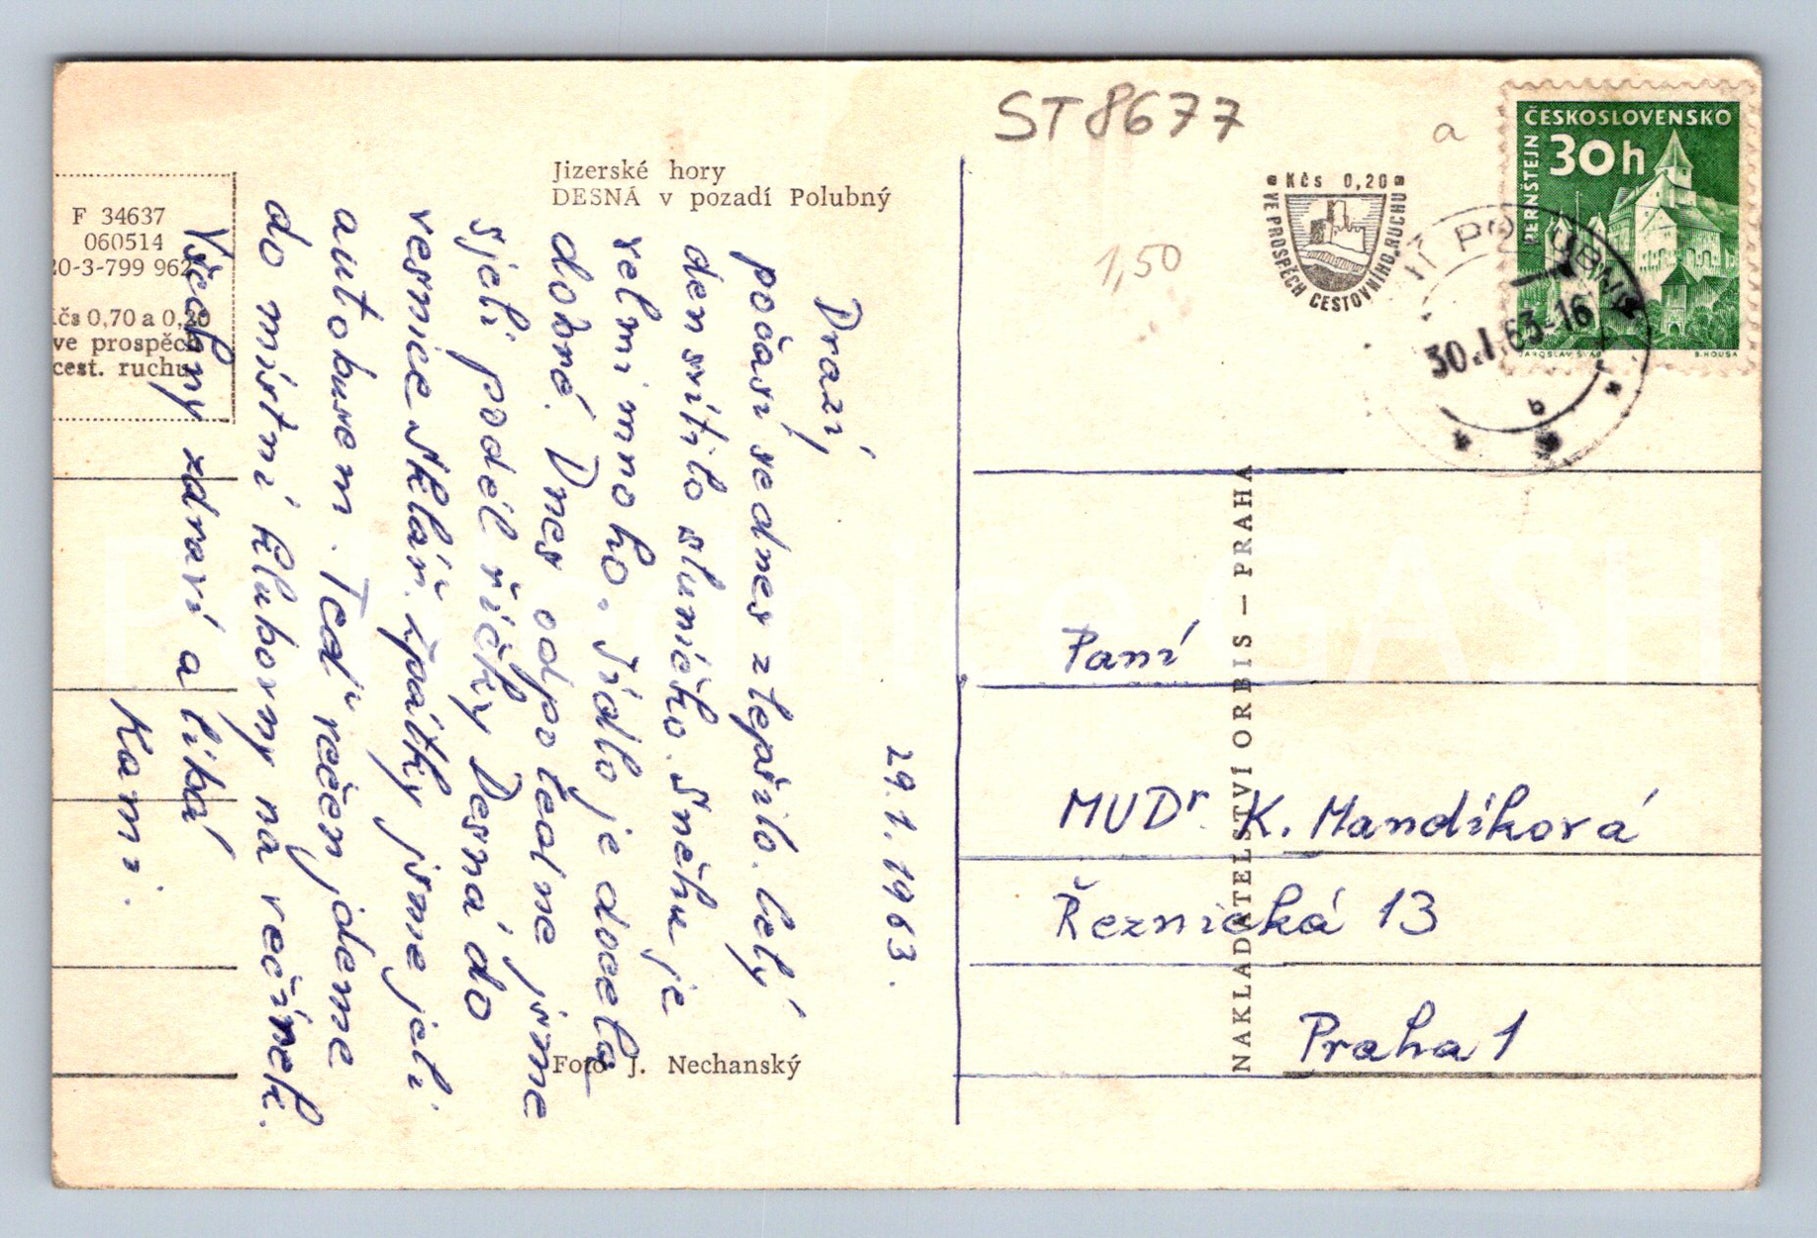 Jizerské hory
DESNÁ v pozadí Polubný
F 34637
060514
20-3-799 962
Kčs 0,70 a 0,20
ve prospěch
cest. ruchu
29.1.1963.
Drazí,
počasí se dnes zlepšilo. Celý
den svítilo sluníčko. Sněhu je
velmi mnoho. Jídlo je docela
dobré. Dnes odpoledne jsme
sjeli podél říčky Desná do
vesnice Sklář. Zpátky jsme jeli
autobusem. Teď večer jdeme
do místní klubovny na večírek.
Všechny zdraví a líbá
Kami.
Foto J. Nechanský
NAKLADATELSTVÍ ORBIS — PRAHA
ST 8677
a
1,50
Kčs 0,20
VE PROSPĚCH CESTOVNÍHO RUCHU
ČESKOSLOVENSKO
30h
PERNŠTEJN
JAROSLAV ŠVÁB
B. HOUSA
POLUBNÝ
30.I.63-16
b
Paní
MUDr. K. Mandíková
Řeznická 13
Praha 1